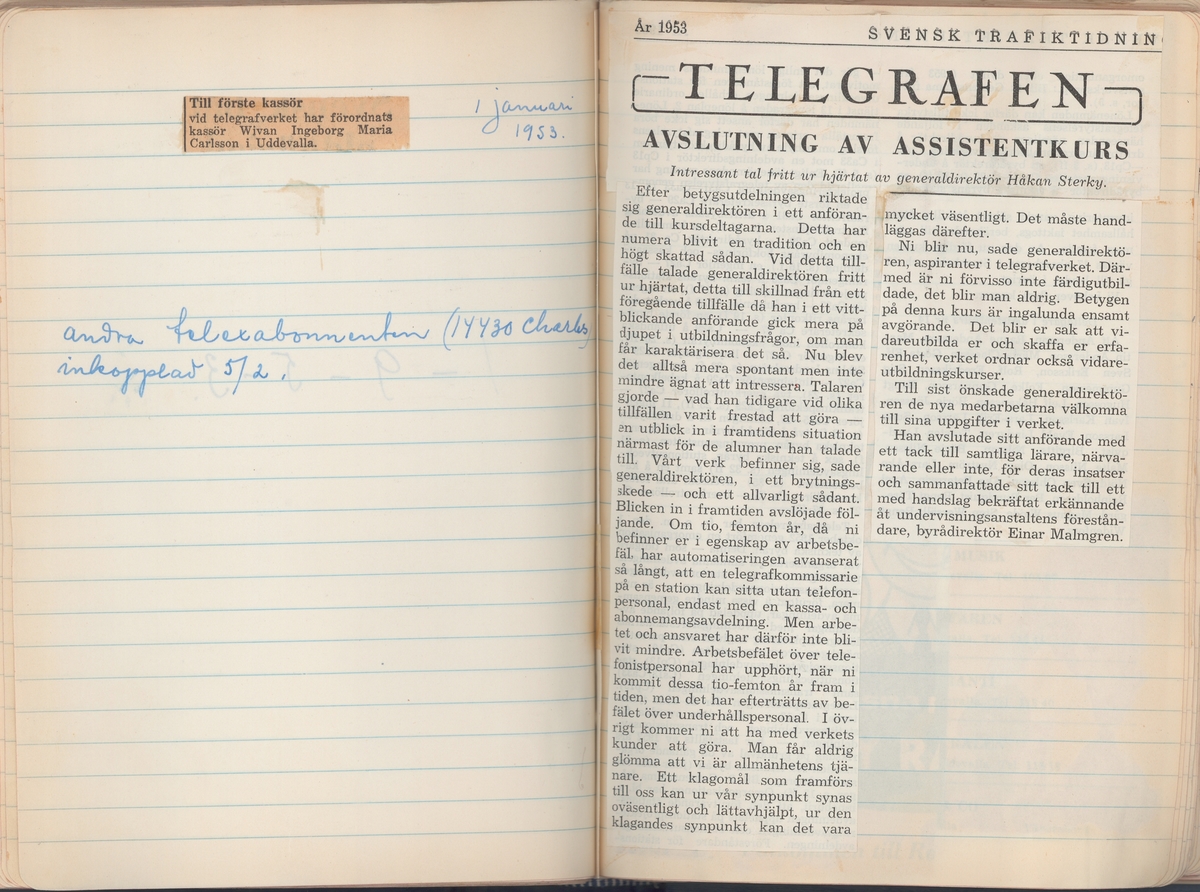 Till förste kassör
vid telegrafverket har förordnats
kassör Wivan Ingeborg Maria
Carlsson i Uddevalla.
1 januari
1953.
andra telexabonnenten (14430 Charles)
inkopplad 5/2.
År 1953
SVENSK TRAFIKTIDNIN
TELEGRAFEN
AVSLUTNING AV ASSISTENTKURS
Intressant tal fritt ur hjärtat av generaldirektör Håkan Sterky.
Efter betygsutdelningen riktade
sig generaldirektören i ett anföran-
de till kursdeltagarna. Detta har
numera blivit en tradition och en
högt skattad sådan. Vid detta till-
fälle talade generaldirektören fritt
ur hjärtat, detta till skillnad från ett
föregående tillfälle då han i ett vitt-
blickande anförande gick mera på
djupet i utbildningsfrågor, om man
får karaktärisera det så. Nu blev
det alltså mera spontant men inte
mindre ägnat att intressera. Talaren
gjorde — vad han tidigare vid olika
tillfällen varit frestad att göra —
en utblick in i framtidens situation
närmast för de alumner han talade
till. Vårt verk befinner sig, sade
generaldirektören, i ett brytnings-
skede — och ett allvarligt sådant.
Blicken in i framtiden avslöjade föl-
jande. Om tio, femton år, då ni
befinner er i egenskap av arbetsbe-
fäl, har automatiseringen avanserat
så långt, att en telegrafkommissarie
på en station kan sitta utan telefon-
personal, endast med en kassa- och
abonnemangsavdelning. Men arbe-
tet och ansvaret har därför inte bli-
vit mindre. Arbetsbefälet över tele-
fonistpersonal har upphört, när ni
kommit dessa tio-femton år fram i
tiden, men det har efterträtts av be-
fälet över underhållspersonal. I öv-
rigt kommer ni att ha med verkets
kunder att göra. Man får aldrig
glömma att vi är allmänhetens tjä-
nare. Ett klagomål som framförs
till oss kan ur vår synpunkt synas
oväsentligt och lättavhjälpt, ur den
klagandes synpunkt kan det vara
mycket väsentligt. Det måste hand-
läggas därefter.
Ni blir nu, sade generaldirektö-
ren, aspiranter i telegrafverket. Där-
med är ni förvisso inte färdigutbil-
dade, det blir man aldrig. Betygen
på denna kurs är ingalunda ensamt
avgörande. Det blir er sak att vi-
dareutbilda er och skaffa er erfa-
renhet, verket ordnar också vidare-
utbildningskurser.
Till sist önskade generaldirektö-
ren de nya medarbetarna välkomna
till sina uppgifter i verket.
Han avslutade sitt anförande med
ett tack till samtliga lärare, närva-
rande eller inte, för deras insatser
och sammanfattade sitt tack till ett
med handslag bekräftat erkännande
åt undervisningsanstaltens förestån-
dare, byrådirektör Einar Malmgren.